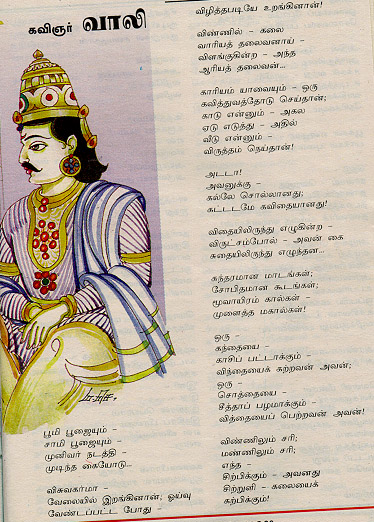 கவிஞர் வாலி
பூமி பூஜையும் -
சாமி பூஜையும் -
முனிவர் நடத்தி -
முடிந்த கையோடு...
விசுவகர்மா -
வேலையில் இறங்கினான்; ஓய்வு
வேண்டப்பட்ட போது -
விழித்தபடியே உறங்கினான்!
விண்ணில் - கலை
வாரியத் தலைவனாய் -
விளங்குகின்ற - அந்த
ஆரியத் தலைவன்...
காரியம் யாவையும் - ஒரு
கவித்துவத்தோடு செய்தான்;
காடு என்னும் - அகல
ஏடு எடுத்து - அதில்
வீடு என்னும் -
விருத்தம் நெய்தான்!
அடடா!
அவனுக்கு -
கல்லே சொல்லானது;
கட்டடமே கவிதையானது!
விதையிலிருந்து எழுகின்ற -
விருட்சம்போல் - அவன் கை
சுதையிலிருந்து எழுந்தன...
சுந்தரமான மாடங்கள்;
சோபிதமான கூடங்கள்;
மூவாயிரம் கால்கள் -
முளைத்த மகால்கள்!
ஒரு -
கந்தையை -
காசிப் பட்டாக்கும் -
விந்தையைக் கற்றவன் அவன்;
ஒரு -
சொத்தையை -
சீத்தாப் பழமாக்கும் -
வித்தையைப் பெற்றவன் அவன்!
விண்ணிலும் சரி;
மண்ணிலும் சரி;
எந்த -
சிற்பிக்கும் - அவனது
சிற்றுளி - கலையைக்
கற்பிக்கும்!